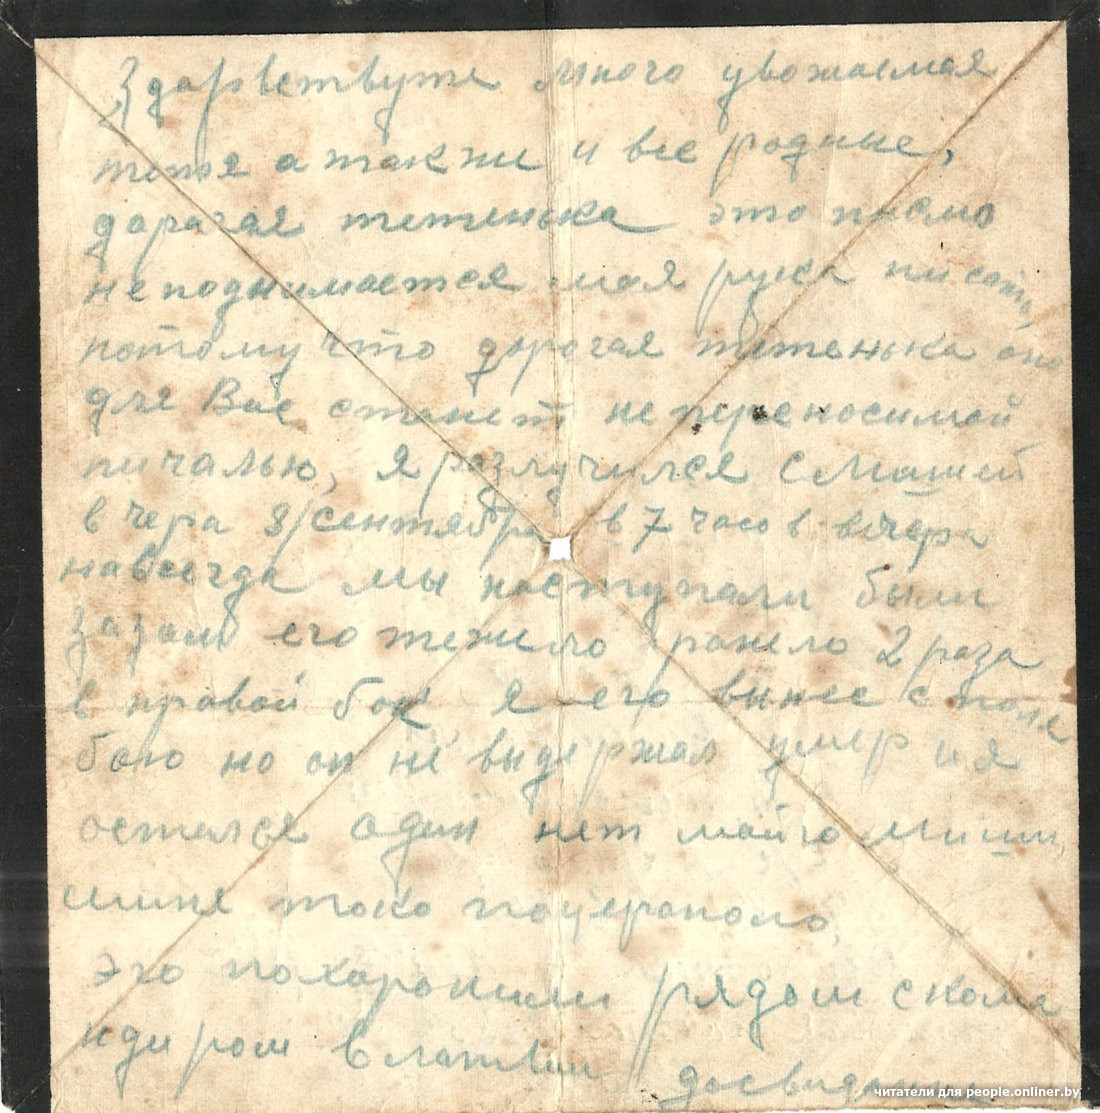 Здарвствуте много уважаемая
тетя а также и все родные,
дарагая тетенька это писмо
неподнимается моя рука писать
потому что дорогая тетенька оно
для Вас станет непереносимой
пичалью, я разлучился с Мишей
вчера 3/сентября в 7 часов вечера
навсегда мы наступали были
его тежело ранело 2 раза
в правой бок я его вынес с поля
бою но он не видержал умер и я
остался один нет майго Миши,
мине токо поцарапало,
эго похаронили рядом с кома
ндиром в Латвии досвидание
читатели для people.onliner.by